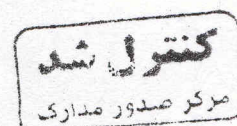 کنترل شد
مرکز صدور مدارک